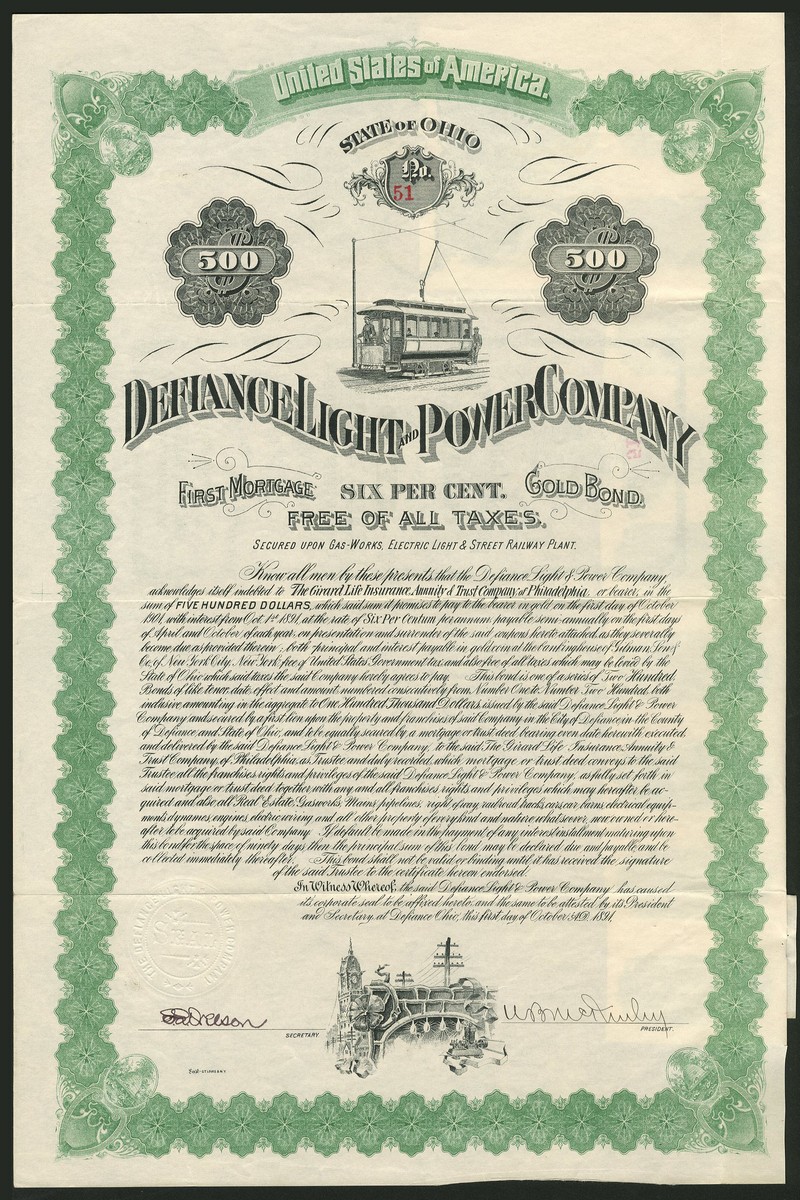 United States of America.
STATE OF OHIO
No.
51
$500
$500
DEFIANCE LIGHT AND POWER COMPANY
FIRST MORTGAGE SIX PER CENT. GOLD BOND.
FREE OF ALL TAXES.
SECURED UPON GAS-WORKS, ELECTRIC LIGHT & STREET RAILWAY PLANT.
Know all men by these presents, that the Defiance Light & Power Company,
acknowledges itself indebted to The Girard Life Insurance, Annuity & Trust Company, of Philadelphia, or bearer, in the
sum of FIVE HUNDRED DOLLARS, which said sum it promises to pay to the bearer in gold on the first day of October
1901, with interest from Oct. 1st 1891, at the rate of Six Per Centum per annum, payable semi-annually on the first days
of April and October of each year, on presentation and surrender of the said coupons hereto attached, as they severally
become due as provided therein; both principal and interest payable in gold coin at the banking house of Gilman, Son &
Co., of New York City, New York, free of United States Government tax, and also free of all taxes which may be levied by the
State of Ohio, which said taxes the said Company hereby agrees to pay. This bond is one of a series of Two Hundred
Bonds of like tenor, date, effect and amount numbered consecutively from Number One to Number Two Hundred, both
inclusive, amounting in the aggregate to One Hundred Thousand Dollars, issued by the said Defiance Light & Power
Company and secured by a first lien upon the property and franchises of said Company in the City of Defiance, in the County
of Defiance and State of Ohio, and to be equally secured by a mortgage or trust deed bearing even date herewith, executed
and delivered by the said Defiance Light & Power Company, to the said The Girard Life Insurance, Annuity &
Trust Company, of Philadelphia, as Trustee and duly recorded, which mortgage or trust deed conveys to the said
Trustee all the franchises rights and privileges of the said Defiance Light & Power Company, as fully set forth in
said mortgage or trust deed, together with any and all franchises rights and privileges which may hereafter be ac-
quired and also all Real Estate, Gasworks, Mains, pipelines, right of way, railroad tracks, cars, car barns, electrical equip-
ments, dynamos, engines, electric wiring and all other property of every kind and nature whatsoever, now owned or here-
after to be acquired by said Company. If default be made in the payment of any interest installment maturing upon
this bond for the space of ninety days then the principal sum of this bond may be declared due and payable and be
collected immediately thereafter. This bond shall not be valid or binding until it has received the signature
of the said Trustee to the certificate hereon endorsed.
In Witness Whereof, the said Defiance Light & Power Company has caused
its corporate seal to be affixed hereto, and the same to be attested by its President
and Secretary, at Defiance, Ohio, this first day of October, A.D. 1891.
SECRETARY.
PRESIDENT.